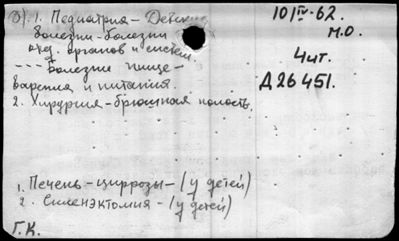 1. Педиатрия - Детские
болезни - болезни
отд. органов и систем.
--- Болезни пище-
варения и питания.
2. Хирургия - брюшная полость.
10/IV-62.
М.О.
4 чит.
Д 26451.
1. Печень - циррозы - (у детей)
2. Спленэктомия - (у детей)
Г.К.